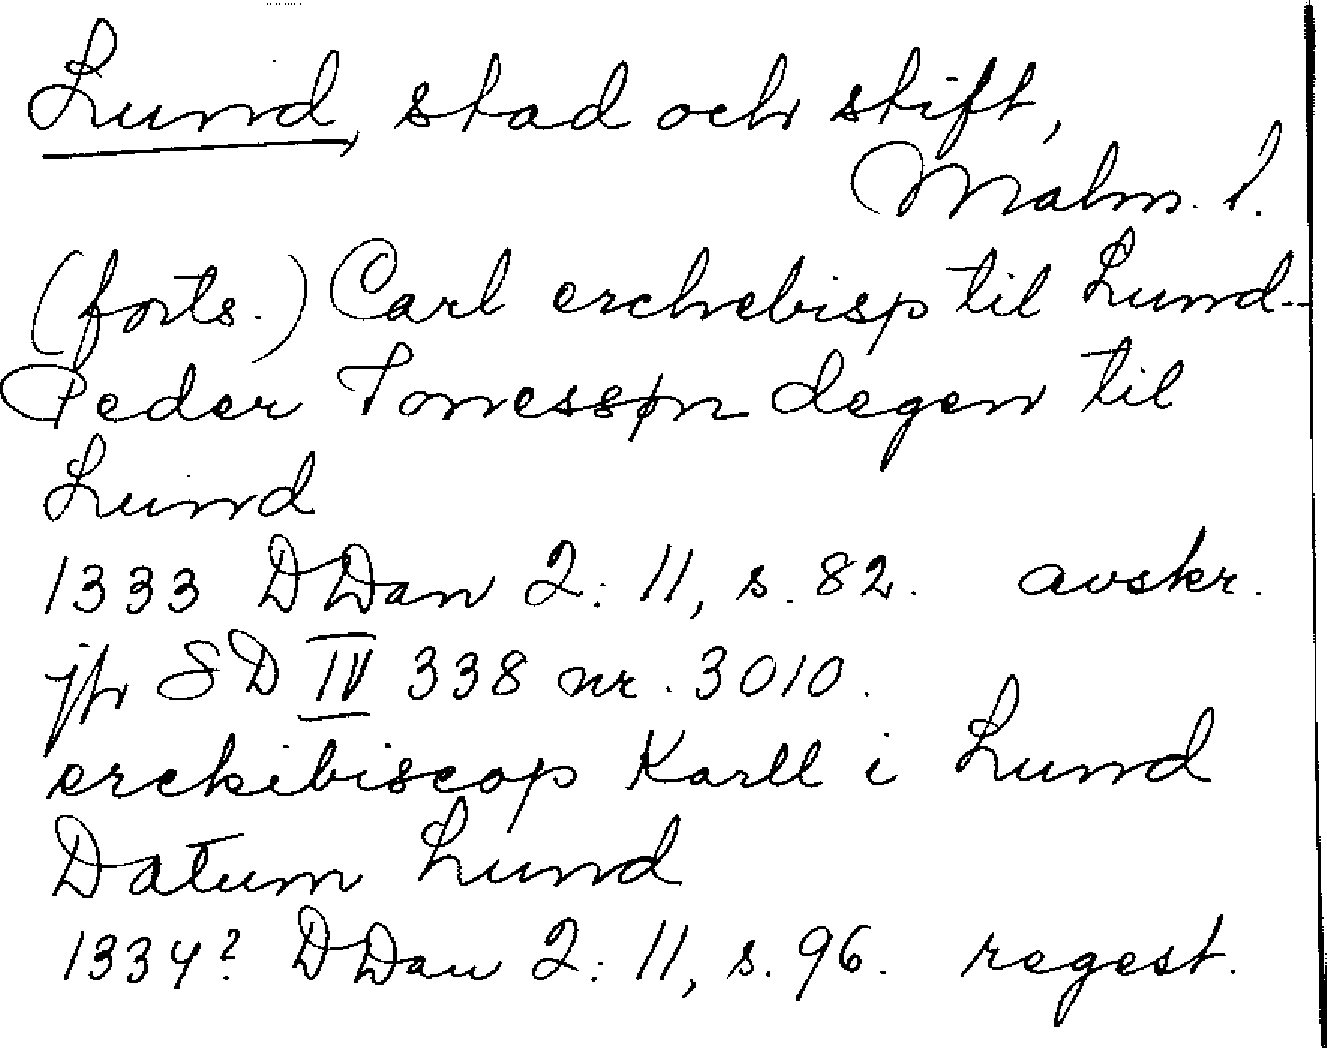 Lund, stad och stift,
Malm. l.
(forts.) Carl erchebisp til Lund-
Peder Jonessøn degen til
Lund
1333 DDan 2: 11, s. 82. avskr.
jfr SD IV 338 nr. 3010.
erckibiscop Karll i Lund
Datum Lund
1334? DDan 2: 11, s. 96. regest.